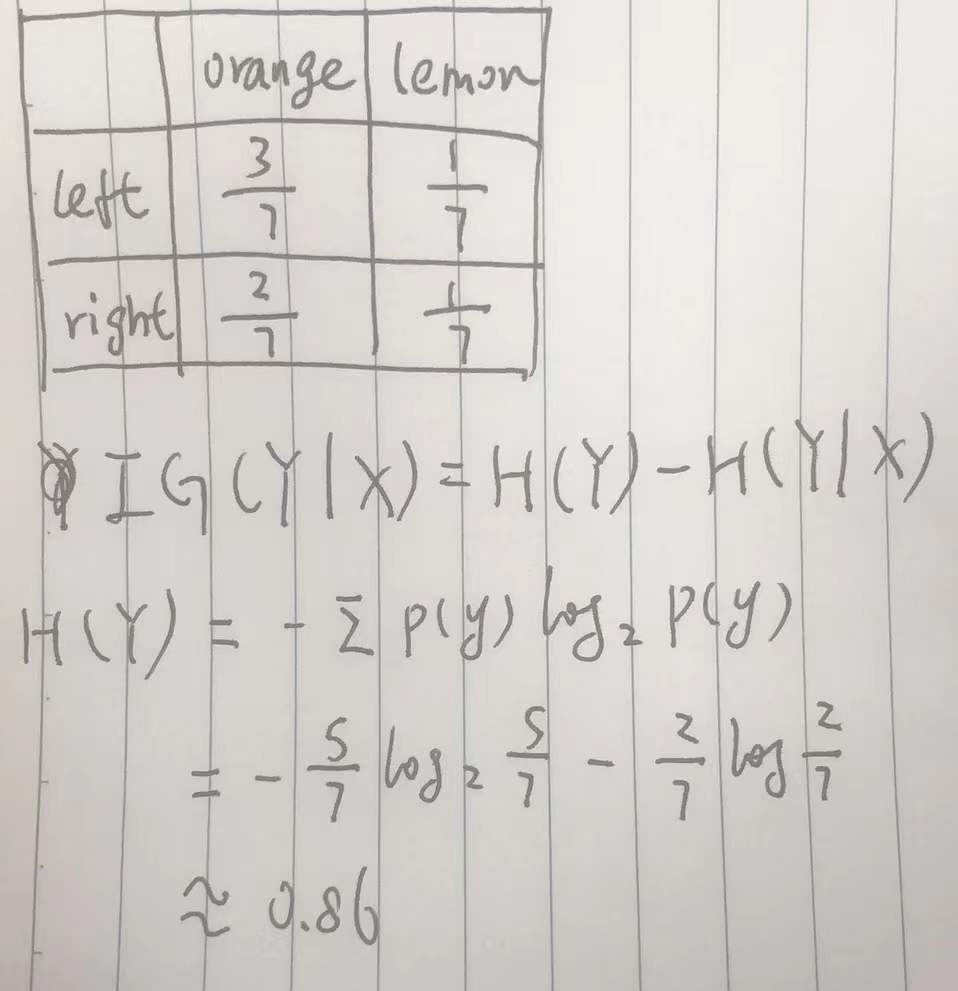 orange lemon
left 3/7 1/7
right 2/7 1/7
IG(Y|X) = H(Y) - H(Y|X)
H(Y) = - Σ P(y) log₂ P(y)
= - 5/7 log₂ 5/7 - 2/7 log 2/7
≈ 0.86